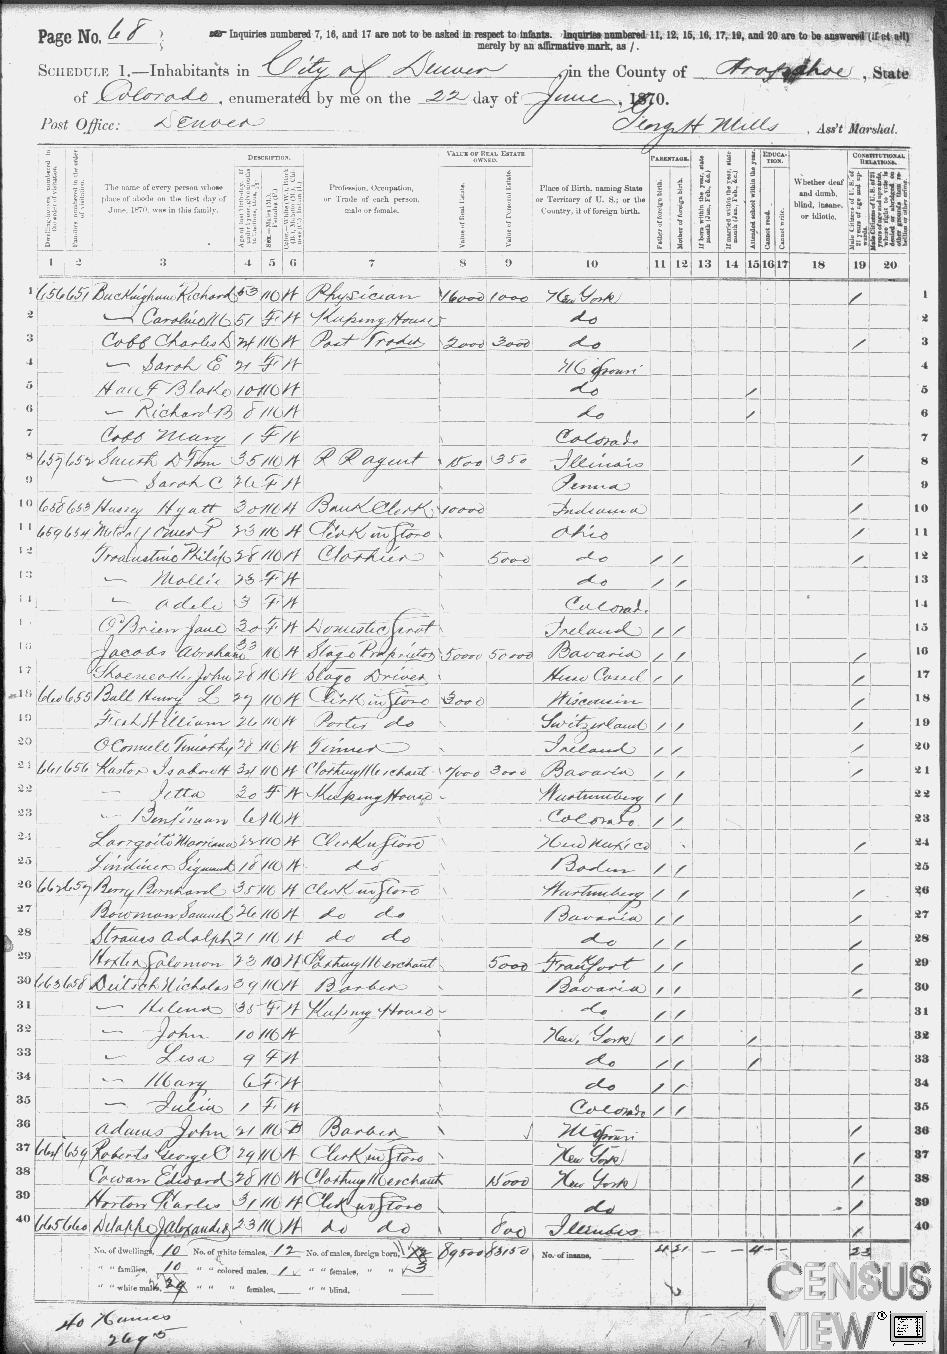 Page No. 68
Inquiries numbered 7, 16, and 17 are not to be asked in respect to infants. Inquiries numbered 11, 12, 15, 16, 17, 19, and 20 are to be answered (if at all)
merely by an affirmative mark, as /.
SCHEDULE 1.—Inhabitants in City of Denver, in the County of Arapahoe, State
of Colorado, enumerated by me on the 22 day of June, 1870.
Post Office: Denver George H Mills, Ass't Marshal.
DESCRIPTION. VALUE OF REAL ESTATE OWNED. PARENTAGE. EDUCATION. CONSTITUTIONAL RELATIONS.
The name of every person whose place of abode on the first day of June, 1870, was in this family.
Profession, Occupation, or Trade of each person, male or female.
Value of Real Estate.
Value of Personal Estate.
Place of Birth, naming State or Territory of U. S.; or the Country, if of foreign birth.
Father of foreign birth.
Mother of foreign birth.
Attended school within the year.
Cannot read.
Cannot write.
Whether deaf and dumb, blind, insane, or idiotic.
1 2 3 4 5 6 7 8 9 10 11 12 13 14 15 16 17 18 19 20
1 656 651 Buckingham Richard 53 M W Physician 16000 1000 New York / 1
2 — Caroline 51 F W Keeping House do 2
3 Cobb Charles D 24 M W Post Trader 2000 3000 do / 3
4 — Sarah E 21 F W Missouri 4
5 Blake 10 M W do / 5
6 — Richard B 8 M W do / 6
7 Cobb Mary 1 F W Colorado 7
8 657 652 Smith D Tom 35 M W R R agent 1500 350 Illinois / 8
9 — Sarah C 26 F W Penna 9
10 658 653 Hussey Hyatt 30 M W Bank Clerk 10000 Indiana / 10
11 659 654 23 M W Clerk in Store Ohio / 11
12 Philip 28 M W Clothier 5000 do / / / 12
13 — Mollie 23 F W do / / 13
14 — Adele 3 F W Colorado 14
15 O'Brien Jane 30 F W Domestic Servt Ireland / / 15
16 Jacobs Abraham 33 M W Stage Proprietor 50000 50000 Bavaria / / / 16
17 John 28 M W Stage Driver Hesse Cassel / / / 17
18 660 655 Ball Henry L 27 M W Clerk in Store 3000 Wisconsin / 18
19 Fish William 26 M W Porter do Switzerland / / / 19
20 O Connell Timothy 28 M W Tinner Ireland / / / 20
21 661 656 Kastor Isador H 34 M W Clothing Merchant 7000 3000 Bavaria / / / 21
22 — Jetta 20 F W Keeping House Wurtemberg / / 22
23 — Benjiman M W Colorado / / 23
24 Larrgoite Marriana 22 M W Clerk in Store New Mexico / 24
25 Lindiner Sigmund 18 M W do Baden / / 25
26 662 657 Berry Bernhard 35 M W Clerk in Store Wurtemberg / / / 26
27 Bowman Samuel 26 M W do do Bavaria / / / 27
28 Strauss Adolph 21 M W do do do / / / 28
29 Hexter Solomon 23 M W Clothing Merchant 5000 Frankfort / / / 29
30 663 658 Deitsch Nicholas 39 M W Barber Bavaria / / / 30
31 — Helena 35 F W Keeping House do / / 31
32 — John 10 M W New York / / / 32
33 — Lesa 9 F W do / / / 33
34 — Mary 6 F W do / / 34
35 — Julia 1 F W Colorado / / 35
36 Adams John 21 M B Barber Missouri / 36
37 664 659 Roberts George C 29 M W Clerk in Store New York / 37
38 Cowan Edward 28 M W Clothing Merchant 15000 New York / 38
39 Horton Charles 31 M W Clerk in Store do / 39
40 665 660 Alexander 23 M W do do 800 Illinois / 40
No. of dwellings, 10 No. of white females, 12 No. of males, foreign born, 89500 83150 No. of insane, 21 — — 4 — — 23
" " families, 10 " " colored males, 1 " " females, " " 3
" " white males, 29 " " " females, — " " blind, —
40 Names
CENSUS
VIEW